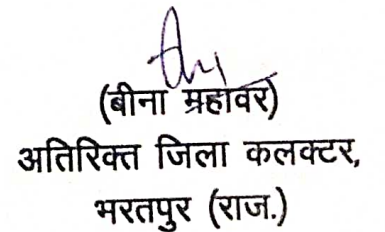 (बीना म्रहावर)
अतिरिक्त जिला कलक्टर,
भरतपुर (राज.)